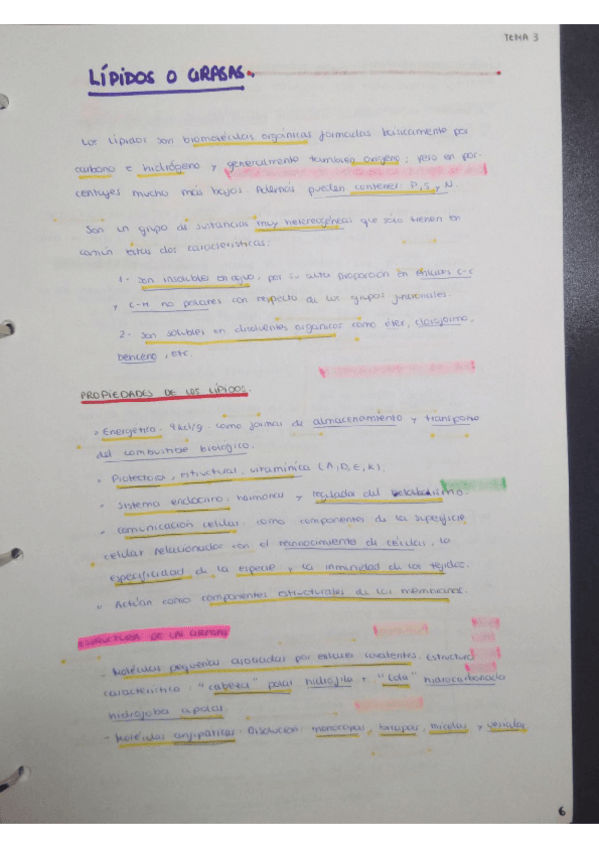 TEMA 3
LÍPIDOS O GRASAS.
Los lípidos son biomoléculas orgánicas formadas básicamente por
carbono e hidrógeno y generalmente también oxígeno; pero en por-
centajes mucho más bajos. Además pueden contener: P, S, y N.
Son un grupo de sustancias muy heterogéneas que solo tienen en
común estas dos características:
1- Son insolubles en agua, por su alta proporción en enlaces C-C
y C-H no polares con respecto de los grupos funcionales.
2- Son solubles en disolventes orgánicos como éter, cloroformo,
benceno, etc.
PROPIEDADES DE LOS LÍPIDOS.
Energético. 9kcl/g. como formas de almacenamiento y transporte
del combustible biológico.
Protectora, estructural, vitamínica (A, D, E, K).
Sistema endocrino: hormonas y regulador del metabolismo.
- Comunicación celular: como componentes de la superficie
celular relacionados con el reconocimiento de células, la
especificidad de la especie y la inmunidad de los tejidos.
Actúan como componentes estructurales de las membranas.
ESTRUCTURA DE LAS GRASAS
- Moléculas pequeñas asociadas por enlaces covalentes. Estructura
característica: "cabeza" polar hidrófila y "cola" hidrocarbonada
hidrófoba apolar.
- Moléculas anfipáticas. Disolución: monocapas, bicapas, micelas y vesículas
6